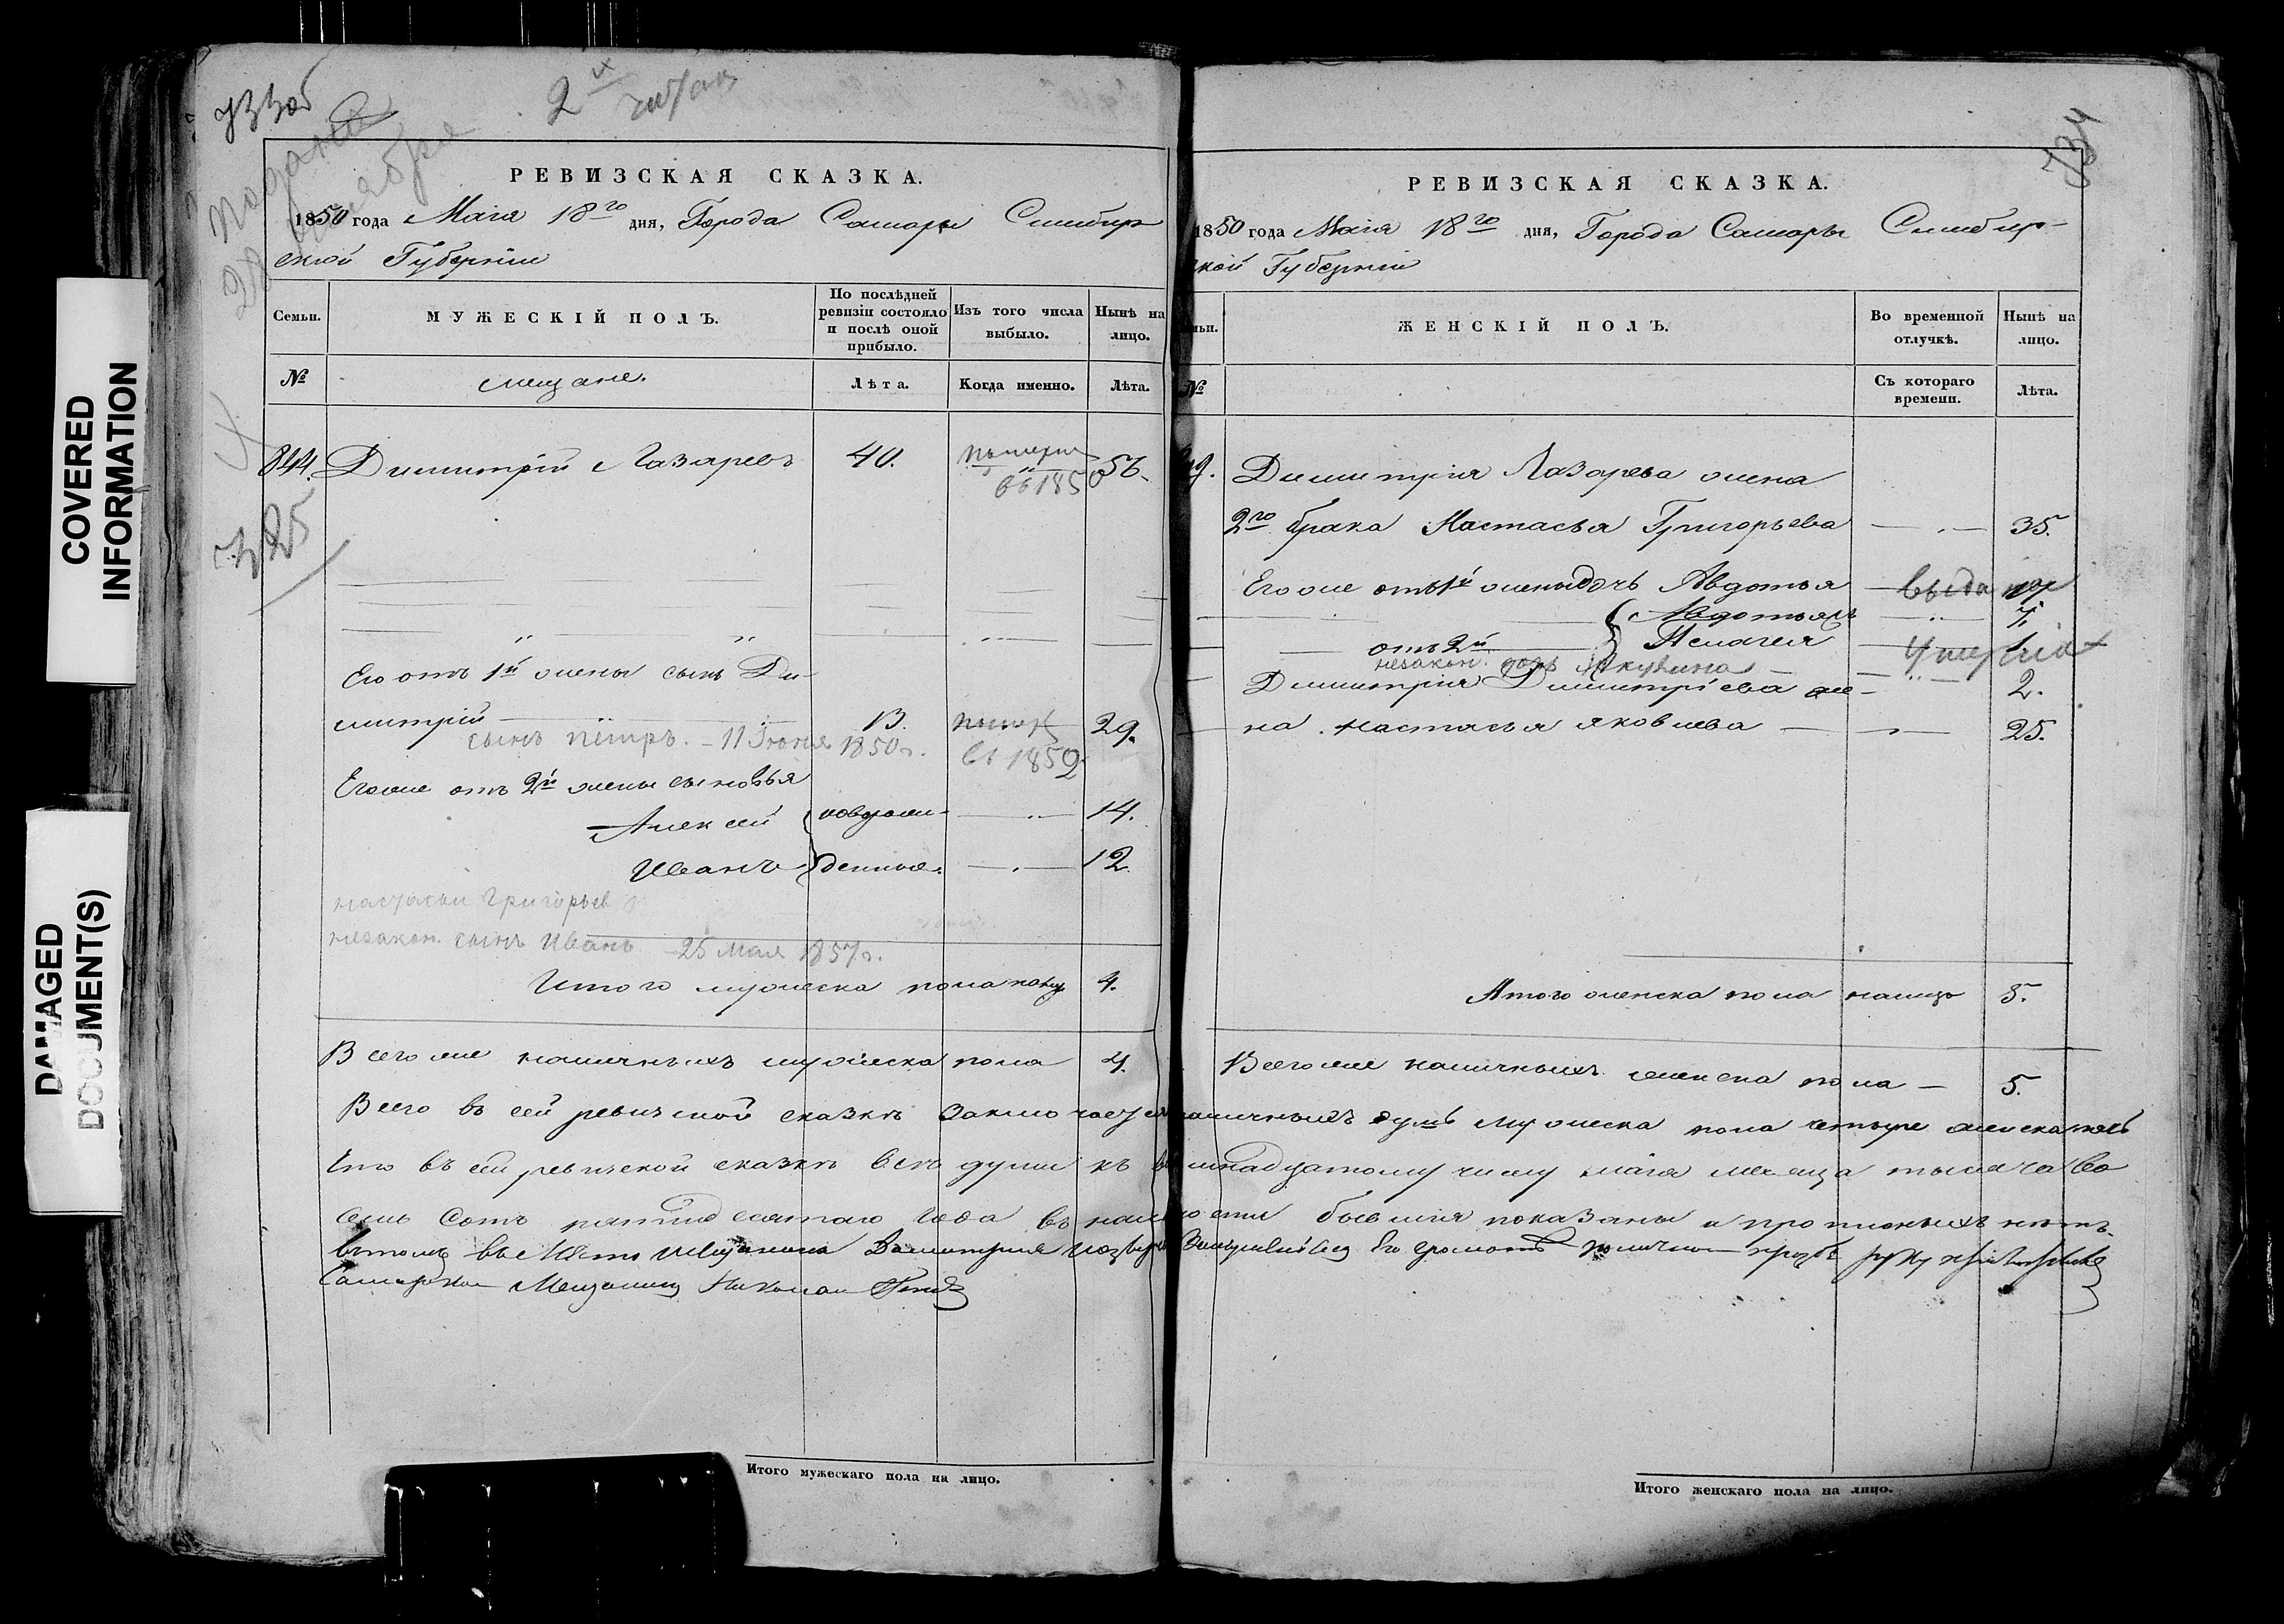 COVERED
INFORMATION
DAMAGED
DOCUMENT(S)
подана
РЕВИЗСКАЯ СКАЗКА.
1850 года Маія 18го дня, Города Самары Симбир
ской Губерніи
Семьи.
МУЖЕСКІЙ ПОЛЪ.
По послѣдней ревизіи состояло и послѣ оной прибыло.
Изъ того числа выбыло.
Нынѣ на лицо.
№
мещане.
Лѣта.
Когда именно.
Лѣта.
844. Димитрій Лазаревъ 40. 56.
въ 1850
325
Его отъ 1й жены сынъ Ди-
митрій 13. 29.
сынъ Петръ. - 11 Іюня 1850 г. въ 1852
Егоже отъ 2й жены сыновья
Алексей новорож- 14.
Иванъ денные. 12.
настасьи Григорьев
незакон. сынъ Иванъ 25 мая 1857 г.
Итого мужеска пола налиц 4.
Всегоже наличныхъ мужеска пола 4.
РЕВИЗСКАЯ СКАЗКА.
1850 года Маія 18го дня, Города Самары Симбир-
ской Губерніи
ЖЕНСКІЙ ПОЛЪ.
Во временной отлучкѣ.
Нынѣ на лицо.
№
Съ котораго времени.
Лѣта.
Димитрія Лазарева жена
2го брака Настасья Григорьева 35.
Егоже отъ 1й жены дочь Авдотья
отъ 2й Пелагея
незакон. дочь Акулина
Димитрія Димитріева же- 2.
на Настасья Яковлева 25.
Итого женска пола налицо 5.
Всегоже наличныхъ женска пола 5.
Всего въ сей ревизской сказкѣ заключается наличныхъ душъ мужеска пола четыре женска пять
Что въ сей ревизской сказкѣ всѣ души къ восемнадцатому числу маія месяца тысяча во
семь сотъ пятидесятаго года въ наличности бывшія показаны и прописныхъ нѣтъ.
Самарской Мещанинъ Николай
Итого мужескаго пола на лицо.
Итого женскаго пола на лицо.